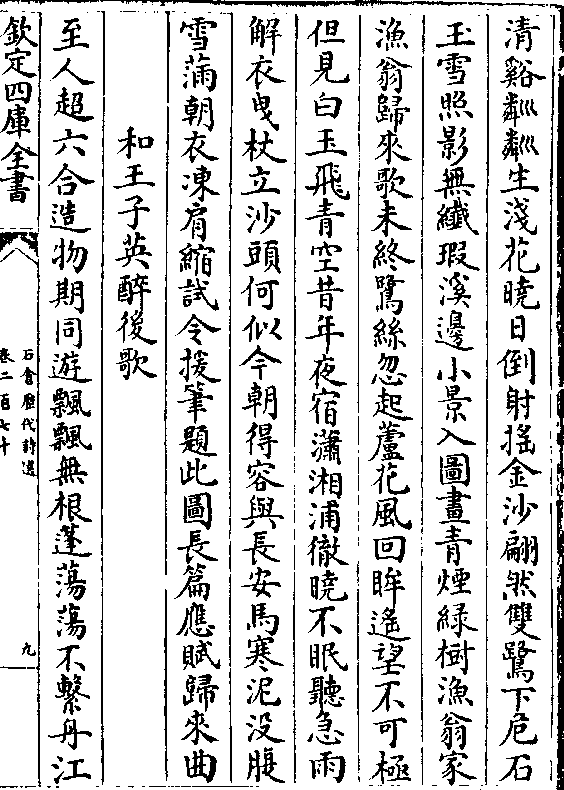 清谿粼粼生淺花曉日倒射搖金沙翩然雙鷺下危石
玉雪照影無纖瑕溪邊小景入圖畫青煙綠樹漁翁家
漁翁歸來歌未終鷺絲忽起蘆花風回眸遙望不可極
但見白玉飛青空昔年夜宿瀟湘浦徹曉不眠聽急雨
解衣曳杖立沙頭何似今朝得容與長安馬寒泥没腹
雪滿朝衣凍肩縮試令援筆題此圖長篇應賦歸來曲
和王子英醉後歌
至人超六合造物期同遊飄飄無根蓬蕩蕩不繫舟江
欽定四庫全書
石倉歷代詩選
卷二百七十
九